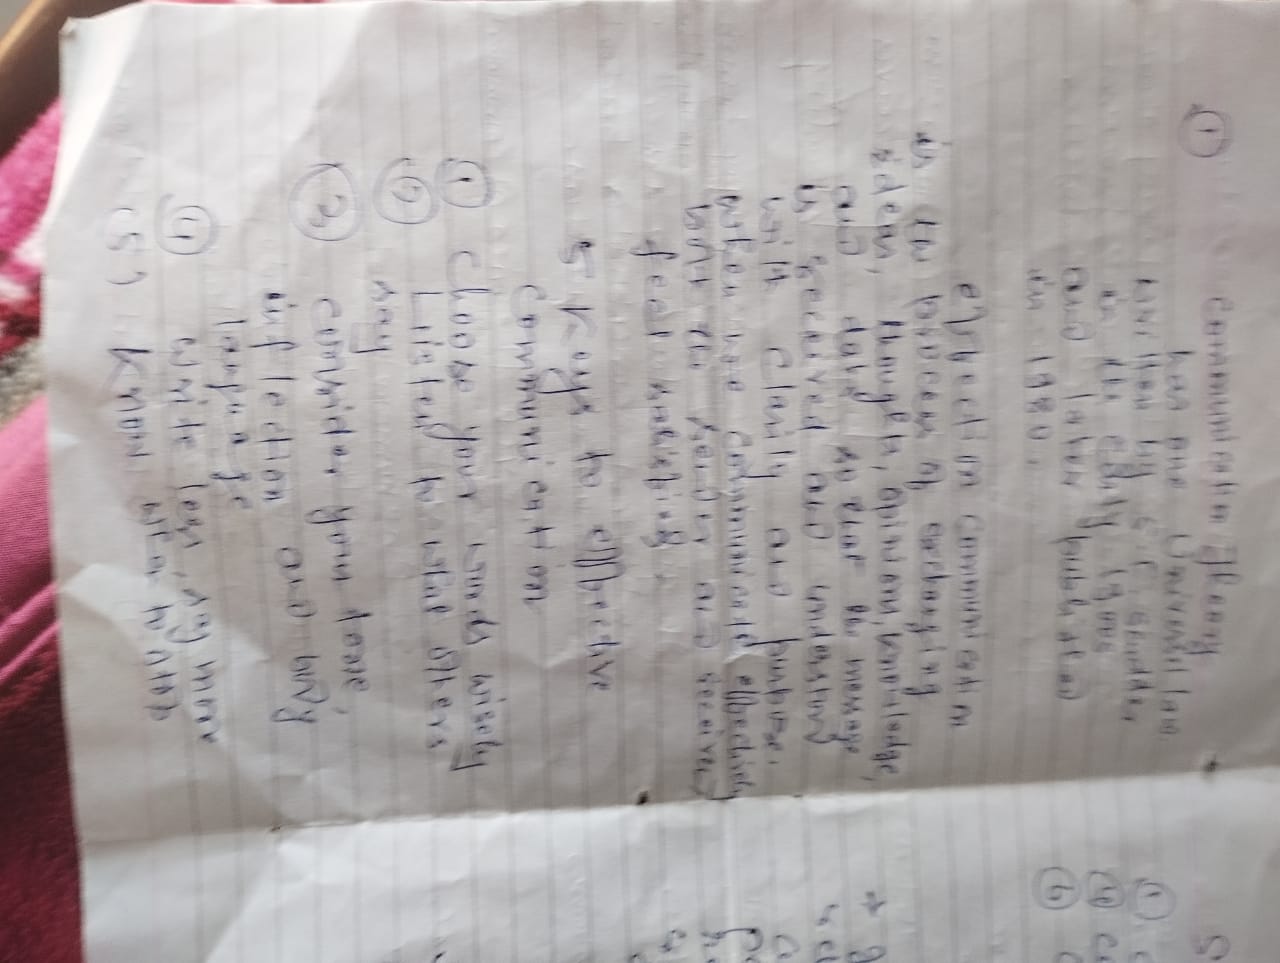 ①
Communication Theory
has one Universal law
written by S. F. Scudder
in the early 1900s
and later published
in 1980.
effection communication
is the process of exchanging
ideas, thoughts, opinions, knowledge,
and data so that the message
is received and understood
with clarity and purpose.
when we communicate effectively
both the sender and receiver
feel satisfied.
5 Keys to effective
communication
① choose your words wisely
② Listen to what others
say
③ consider your tone,
inflection and body
language
④ write less, say more
(5) Know when to stop
S
①
④
⑥